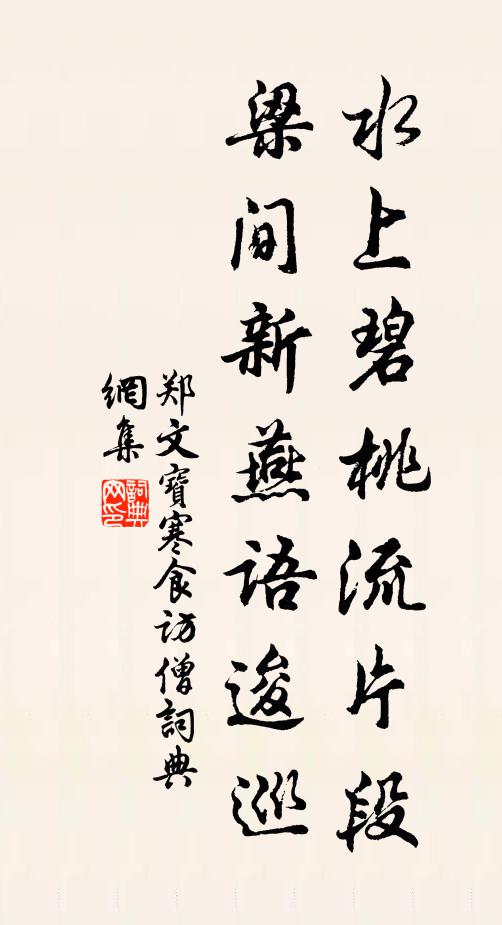 水上碧桃流片段
梁间新燕语逡巡
郑文寶寒食访僧詞典
網集
詞典
网印